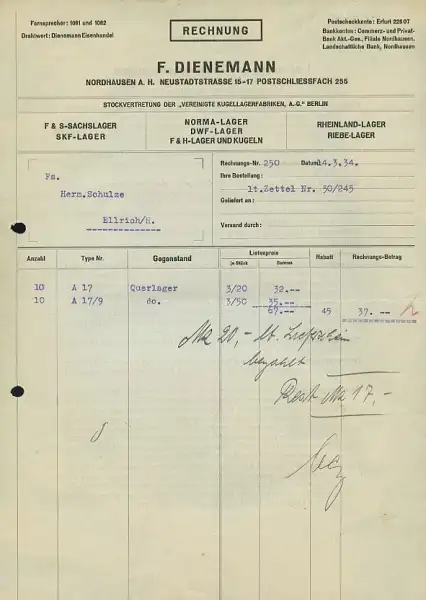 Fernsprecher: 1081 und 1082
Drahtwort: Dienemann Eisenhandel
RECHNUNG
Postscheckkonto: Erfurt 226 07
Bankkonten: Commerz- und Privat-
Bank Akt.-Ges., Filiale Nordhausen,
Landschaftliche Bank, Nordhausen
F. DIENEMANN
NORDHAUSEN A. H. NEUSTADTSTRASSE 15-17 POSTSCHLIESSFACH 255
STOCKVERTRETUNG DER „VEREINIGTE KUGELLAGERFABRIKEN, A.-G." BERLIN
F & S-SACHSLAGER
SKF-LAGER
NORMA-LAGER
DWF-LAGER
F & H-LAGER UND KUGELN
RHEINLAND-LAGER
RIEBE-LAGER
Fa.
Herm.Schulze
Ellrich/H.
Rechnungs-Nr. 250 Datum 14.3.34.
Ihre Bestellung:
lt.Zettel Nr. 50/245
Geliefert an:
Versand durch:
Anzahl Type Nr. Gegenstand Listenpreis je Stück Summa Rabatt Rechnungs-Betrag
10 A 17 Querlager 3/20 32.--
10 A 17/9 do. 3/50 35.--
67.-- 45 37.--
Mk 20,- lt.
bezahlt
Rest Mk 17,-